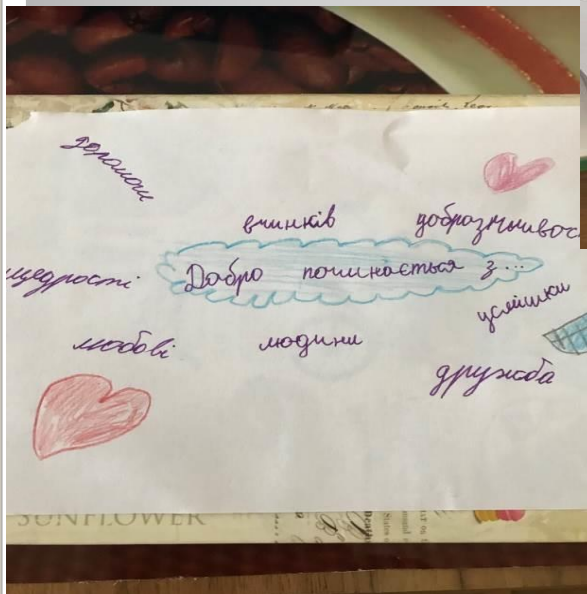 допомоги
вчинків
доброзичливос
щедрості
Добро починається з...
усмішки
любові
людини
дружба
SUNFLOWER